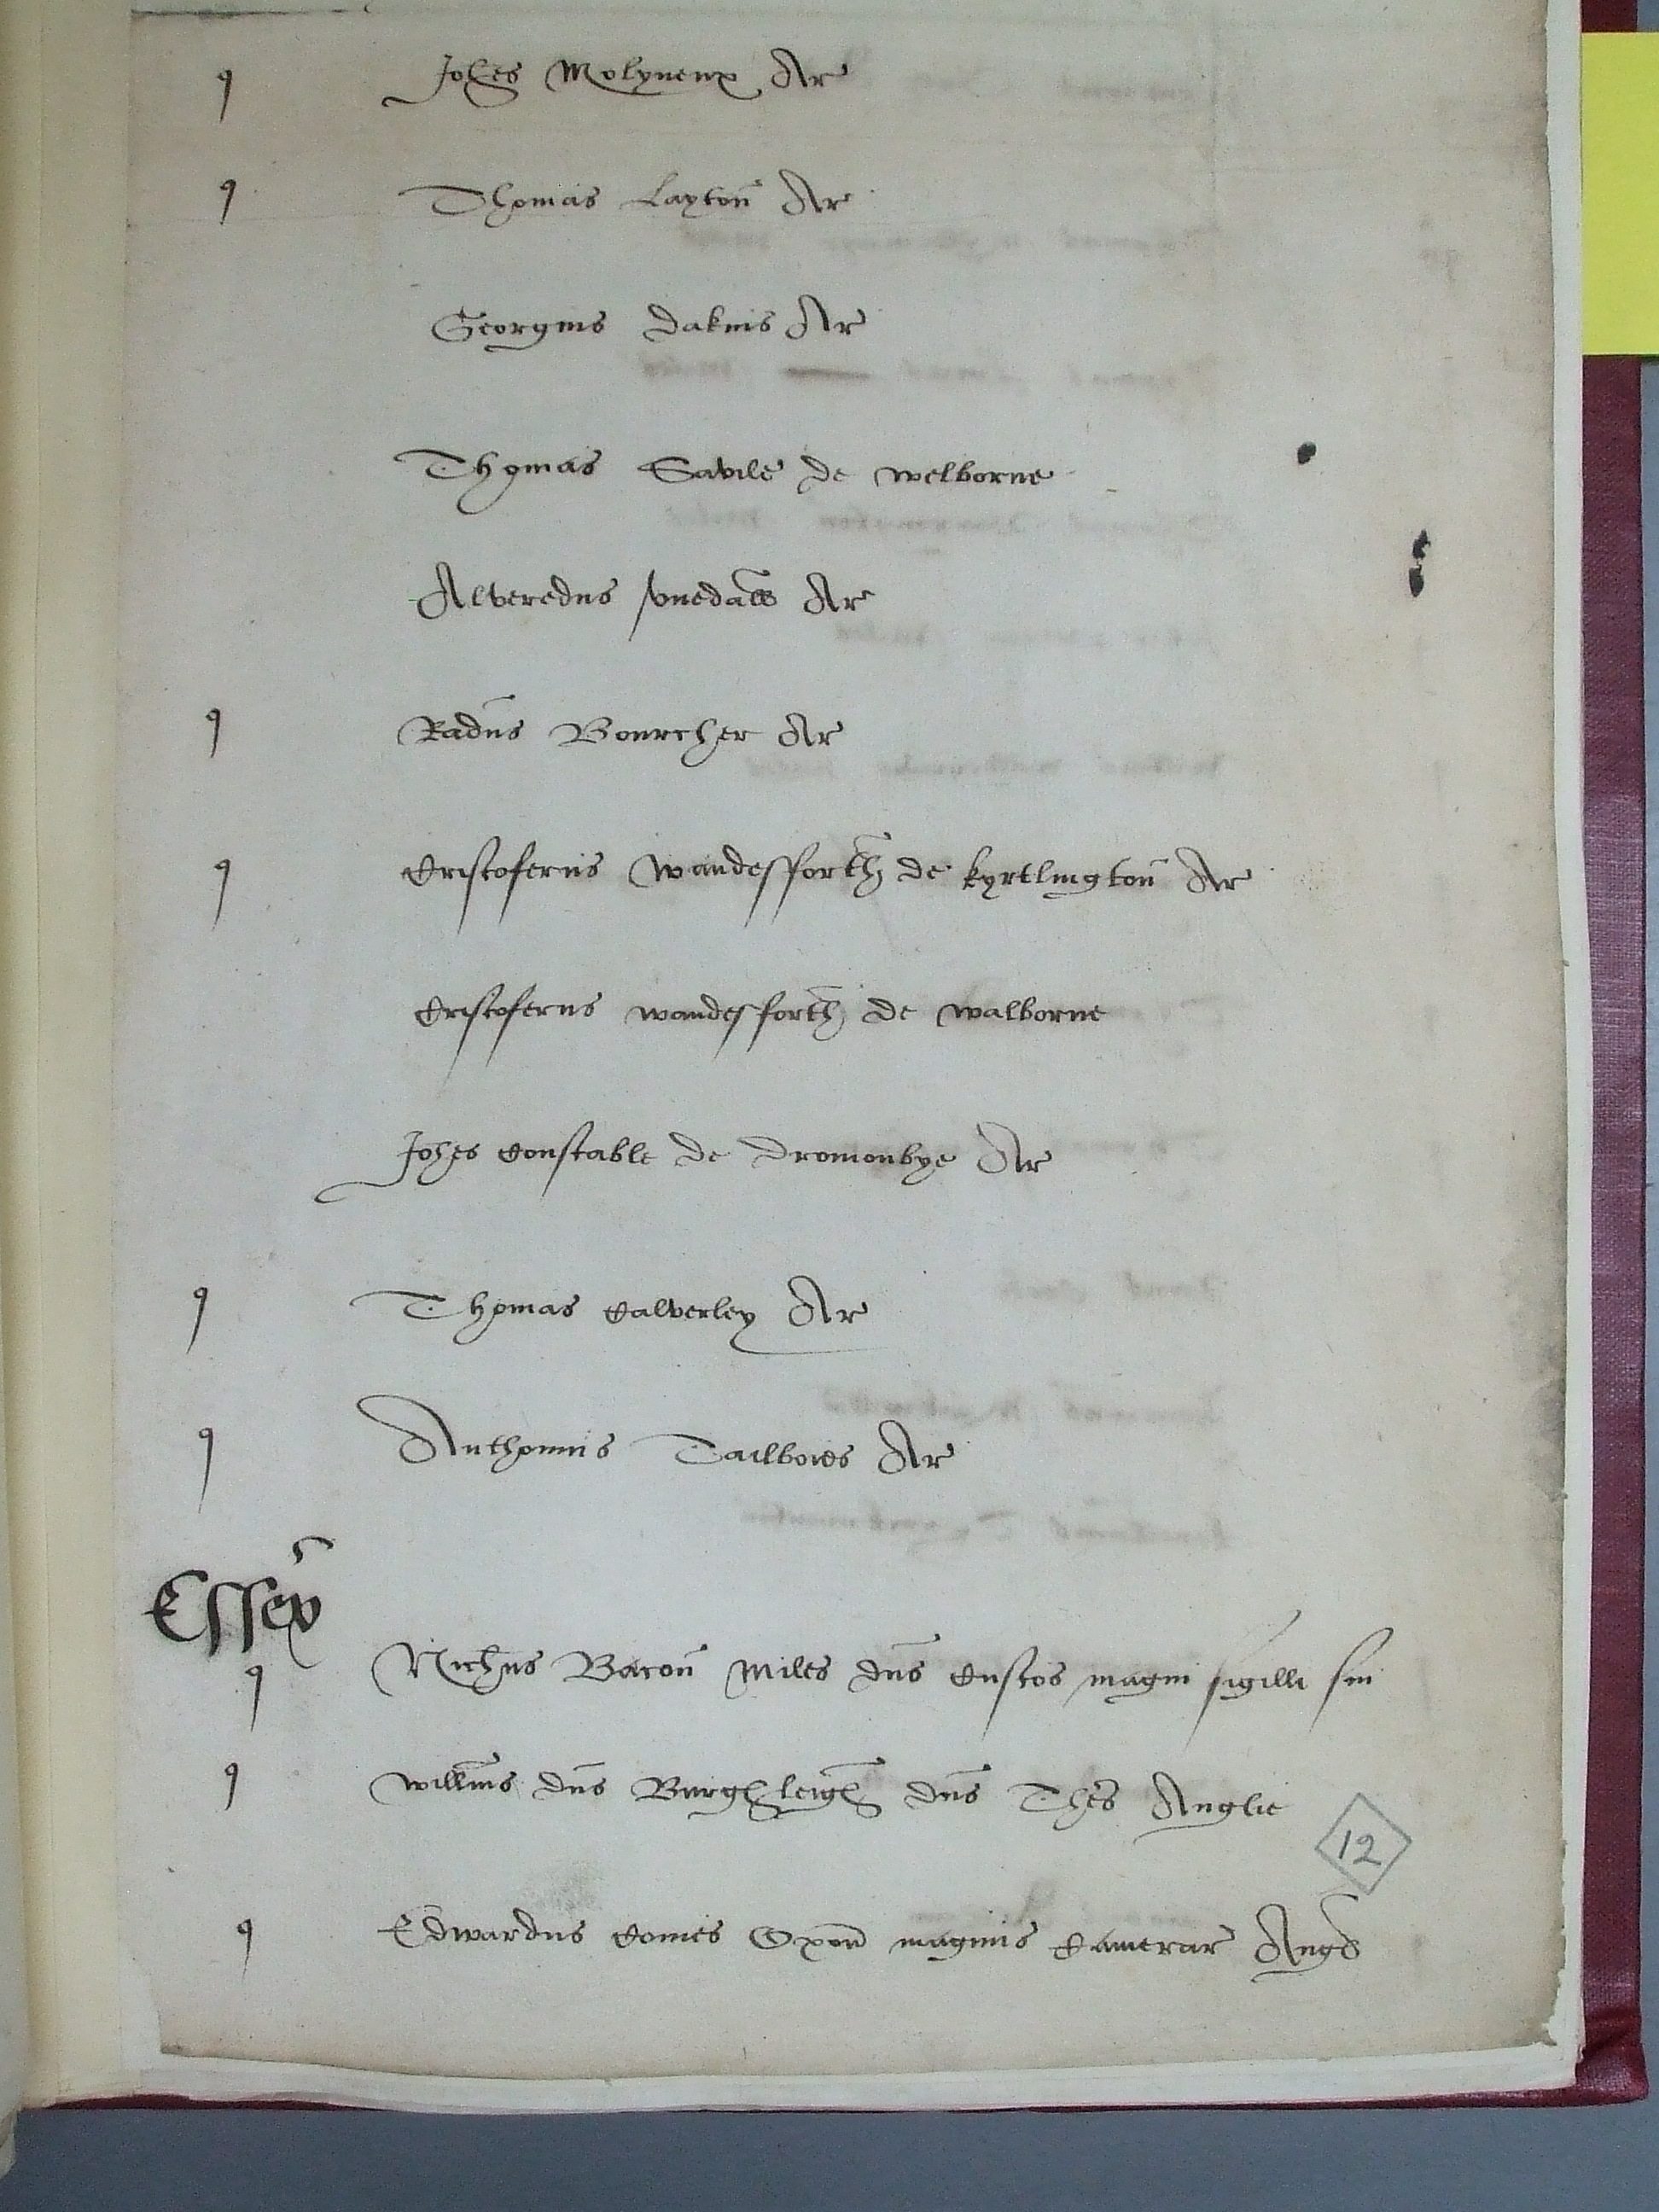 q Joh̃es Molyneux Ar
q Thomas Laytoñ Ar
Georgius dakins Ar
Thomas Savile de welborne
Alveredus Ar
q Radũs Bourcher Ar
q Cristoferus wandesfforth̃ de kyrtlingtoñ Ar
Cristoferus wandesforth̃ de walborne
Johẽs Constable de dromonbye Ar
q Thomas Calverley Ar
q Anthonius Tailbois Ar
Essex̃
q Nich̃us Bacoñ Miles dñs Custos magni sigilli sui
q willm̃us dñs Burgh̃leigh̃ dñs Thes Anglie
12
q Edwardus Comes Oxoñ magnus Camerar Angł